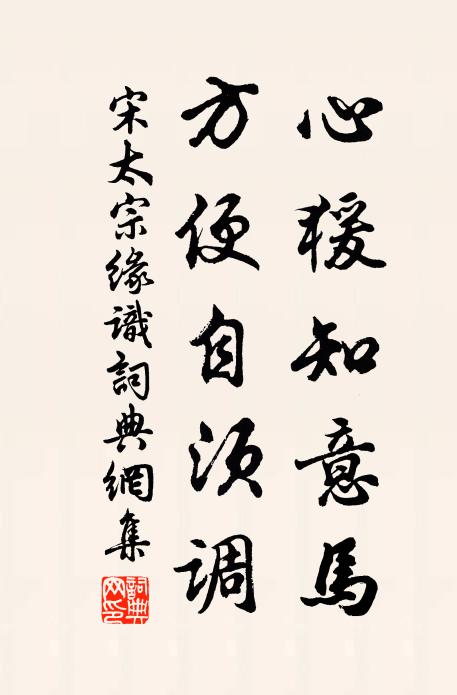 心猨知意馬
方便自須调
宋太宗緣識詞典網集
詞典网印